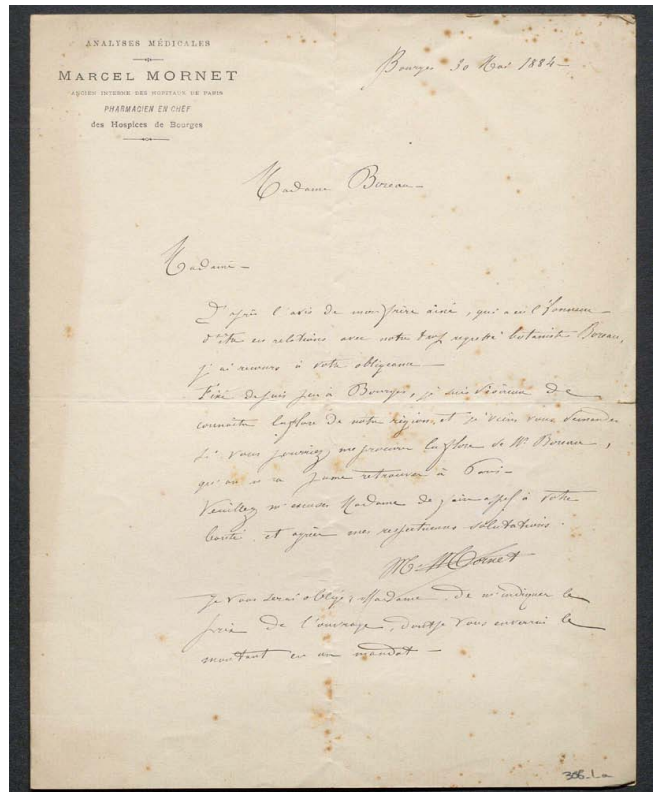 ANALYSES MÉDICALES
MARCEL MORNET
ANCIEN INTERNE DES HOPITAUX DE PARIS
PHARMACIEN EN CHEF
des Hospices de Bourges
Bourges 30 Mai 1884
Madame Boreau
Madame
D'après l'avis de mon frère ainé, qui a eu l'honneur
d'être en relations avec notre trop regretté botaniste Boreau,
j'ai recours à votre obligeance
Fixé depuis peu à Bourges, je suis désireux de
connaître la flore de notre région, et je viens vous demander
si vous pourriez me procurer la flore de Mr Boreau,
qu'on n'a pu me retrouver à Paris
Veuillez m'excuser Madame de faire appel à votre
bonté, et agréer mes respectueuses salutations.
M. Mornet
Je vous serai obligé, Madame, de m'indiquer le
prix de l'ouvrage, dont je vous enverrai le
montant en un mandat